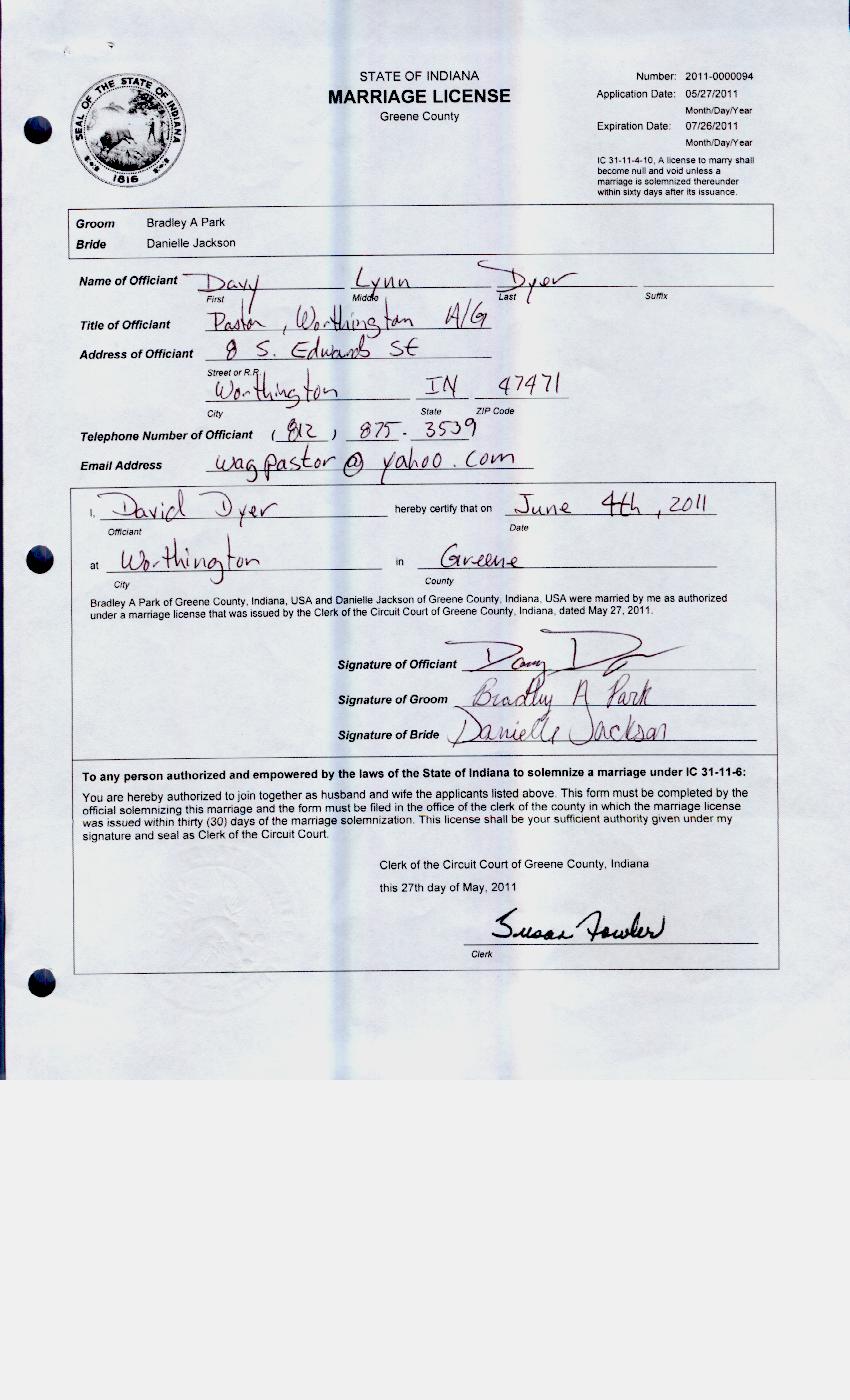 STATE OF INDIANA
MARRIAGE LICENSE
Greene County
Number: 2011-0000094
Application Date: 05/27/2011
Month/Day/Year
Expiration Date: 07/26/2011
Month/Day/Year
IC 31-11-4-10, A license to marry shall
become null and void unless a
marriage is solemnized thereunder
within sixty days after its issuance.
SEAL OF THE STATE OF INDIANA
1816
Groom Bradley A Park
Bride Danielle Jackson
Name of Officiant Davy Lynn Dyer
First Middle Last Suffix
Title of Officiant Pastor, Worthington A/G
Address of Officiant 8 S. Edwards St
Street or R.R.
Worthington IN 47471
City State ZIP Code
Telephone Number of Officiant (812) 875-3539
Email Address wagpastor@yahoo.com
I, David Dyer hereby certify that on June 4th, 2011
Officiant Date
at Worthington in Greene
City County
Bradley A Park of Greene County, Indiana, USA and Danielle Jackson of Greene County, Indiana, USA were married by me as authorized
under a marriage license that was issued by the Clerk of the Circuit Court of Greene County, Indiana, dated May 27, 2011.
Signature of Officiant
Signature of Groom Bradley A Park
Signature of Bride Danielle Jackson
To any person authorized and empowered by the laws of the State of Indiana to solemnize a marriage under IC 31-11-6:
You are hereby authorized to join together as husband and wife the applicants listed above. This form must be completed by the
official solemnizing this marriage and the form must be filed in the office of the clerk of the county in which the marriage license
was issued within thirty (30) days of the marriage solemnization. This license shall be your sufficient authority given under my
signature and seal as Clerk of the Circuit Court.
Clerk of the Circuit Court of Greene County, Indiana
this 27th day of May, 2011
Susan Fowler
Clerk